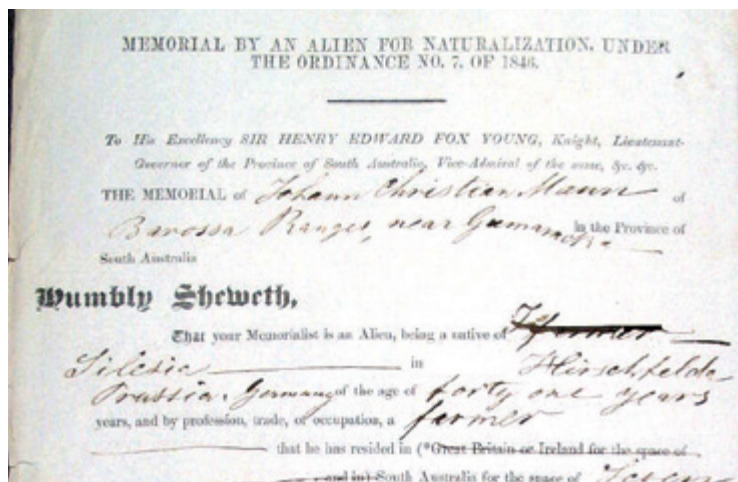 MEMORIAL BY AN ALIEN FOR NATURALIZATION, UNDER
THE ORDINANCE NO. 7, OF 1846.
To His Excellency SIR HENRY EDWARD FOX YOUNG, Knight, Lieutenant-
Governor of the Province of South Australia, Vice-Admiral of the same, &c. &c.
THE MEMORIAL of Johann Christian Mann of
Barossa Ranges, near Gumaracka in the Province of
South Australia
Humbly Sheweth,
That your Memorialist is an Alien, being a native of
Silesia in Hirschfelde
Prussia, Germany of the age of forty one years
years, and by profession, trade, or occupation, a farmer
that he has resided in (*Great Britain or Ireland for the space of
and in) South Australia for the space of Seven